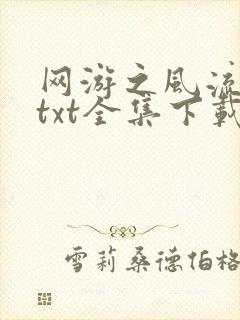 网游之风流
txt全集下载
雪莉桑德伯格